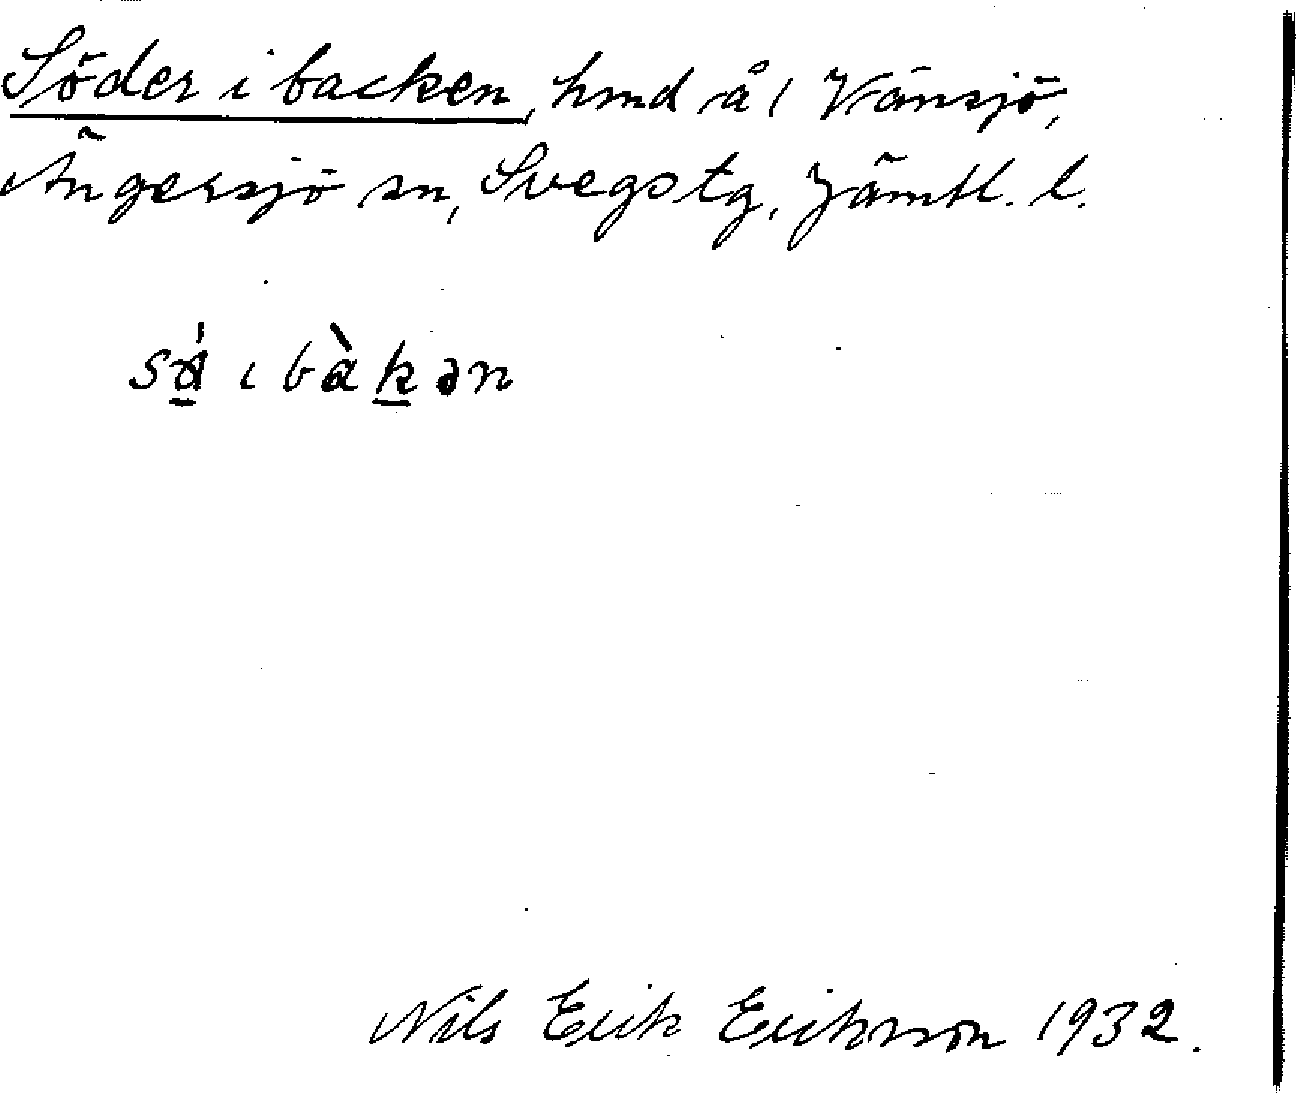 Söder i backen, hmd å 1 Vänsjö,
Ängersjö sn, Svegs tg, Jämtl. l.
sǿ̱ ı bàḵən
Nils Erik Erikson 1932.